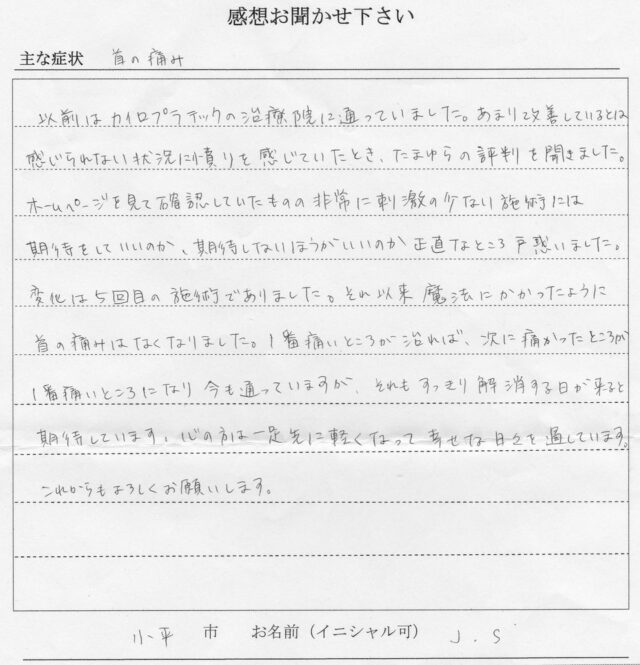 感想お聞かせ下さい
主な症状 首の痛み
以前はカイロプラテックの治療院に通っていました。あまり改善しているとは
感じられない状況に憤りを感じていたとき、たまゆらの評判を聞きました。
ホームページを見て確認していたものの非常に刺激の少ない施術には
期待をしていいのか、期待しないほうがいいのか正直なところ戸惑いました。
変化は5回目の施術でありました。それ以来魔法にかかったように
首の痛みはなくなりました。1番痛いところが治れば、次に痛かったところが
1番痛いところになり今も通っていますが、それもすっきり解消する日が来ると
期待しています。心の方は一足先に軽くなって幸せな日々を過しています。
これからもよろしくお願いします。
小平 市 お名前（イニシャル可） J.S